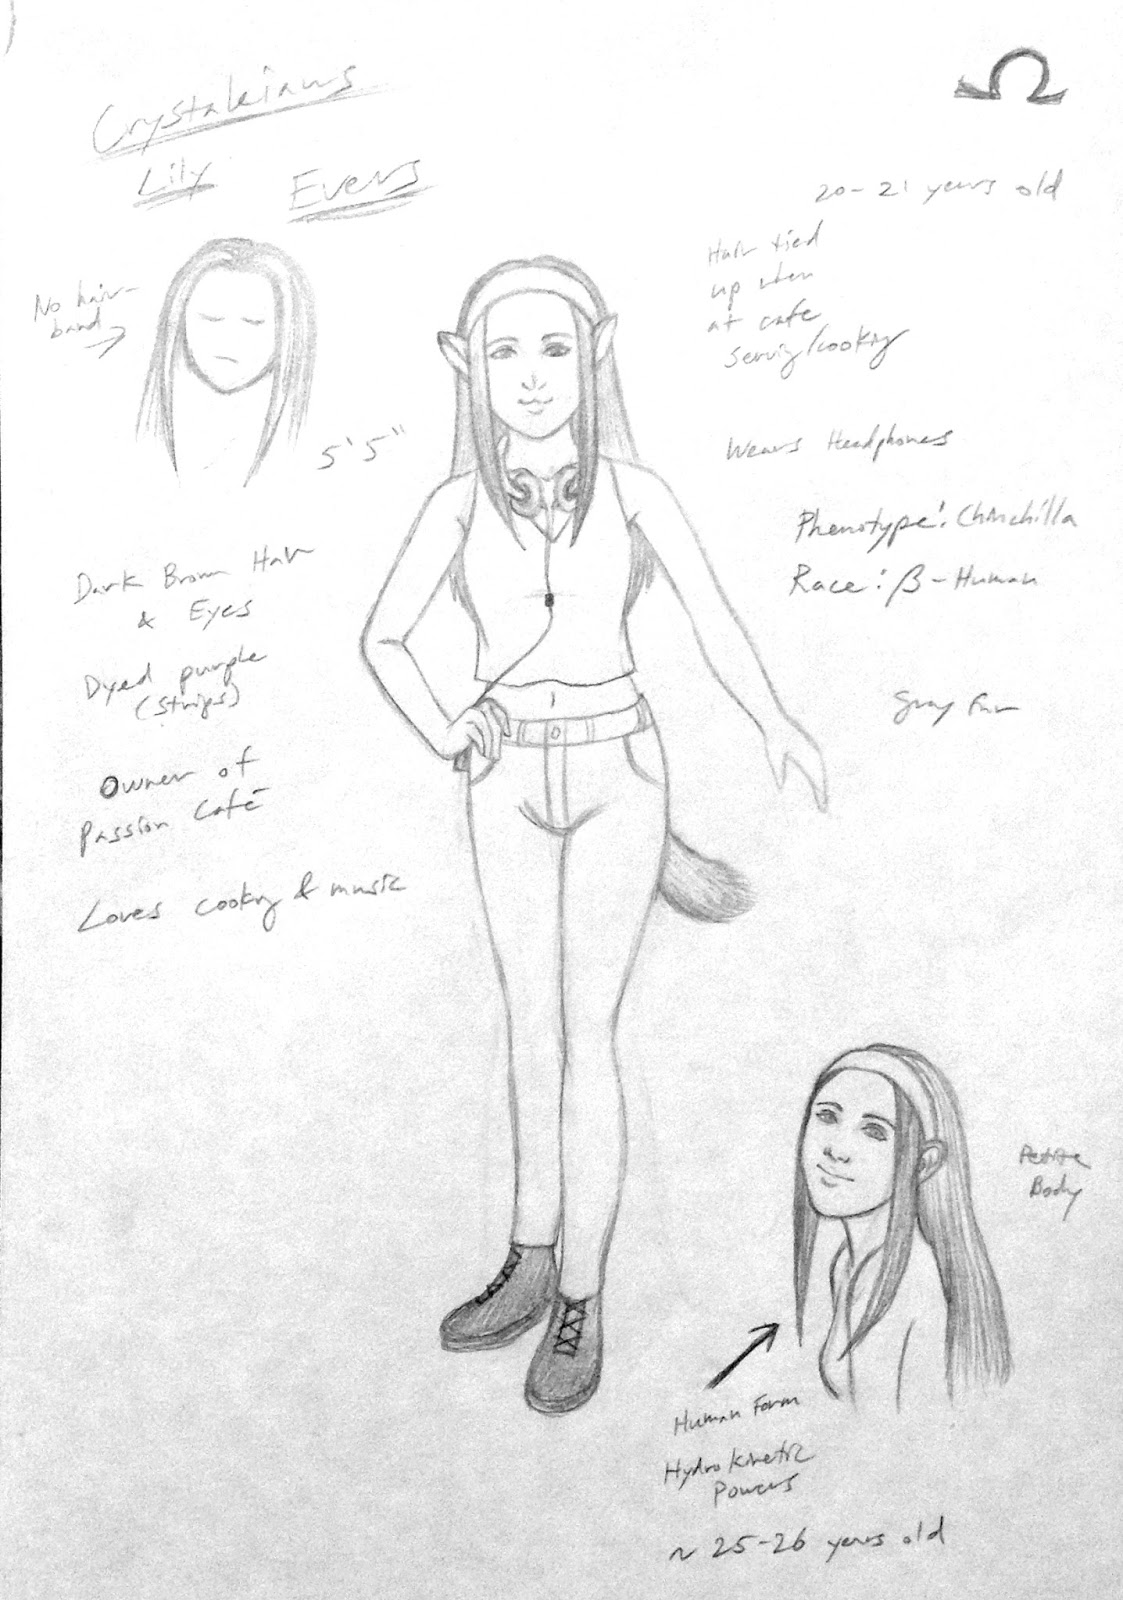 Crystakians
Lily Evers
Ω
20-21 years old
Hair tied
up when
at cafe
serving/cooking
No hair-
band
5'5"
Wears Headphones
Phenotype: Chinchilla
Race: β-Human
Dark Brown Hair
& Eyes
Dyed purple
(strips)
Gray Fur
Owner of
Passion Café
Loves cooking & music
Petite
Body
Human Form
Hydrokinetic
Powers
~ 25-26 years old